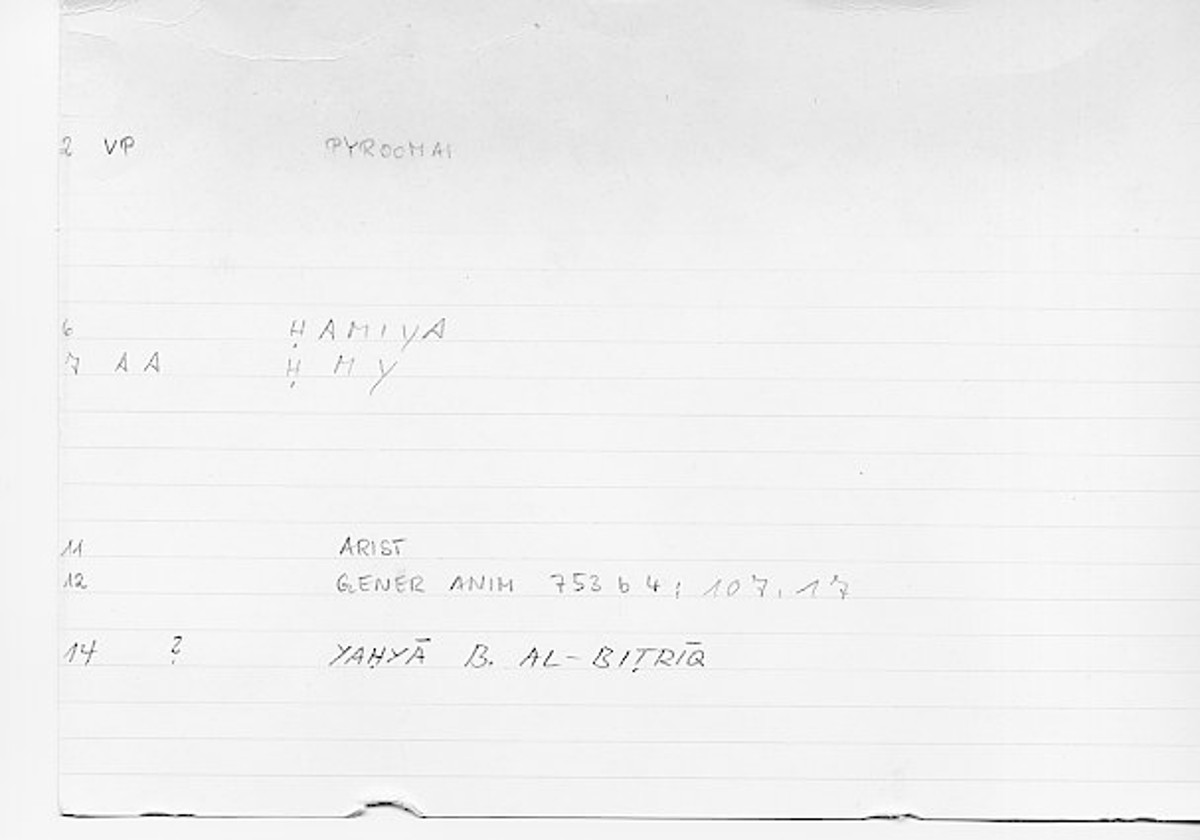 2 VP PYROOMAI
6 ḤAMIYA
7 AA ḤMY
11 ARIST
12 GENER ANIM 753 b 4; 107,17
14 ? YAḤYĀ B. AL-BIṬRĪQ